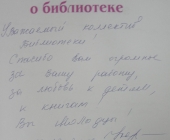 о библиотеке
Уважаемый коллектив
библиотеки!
Спасибо вам огромное
за вашу работу,
за любовь к детям,
и книгам
Вы молодцы